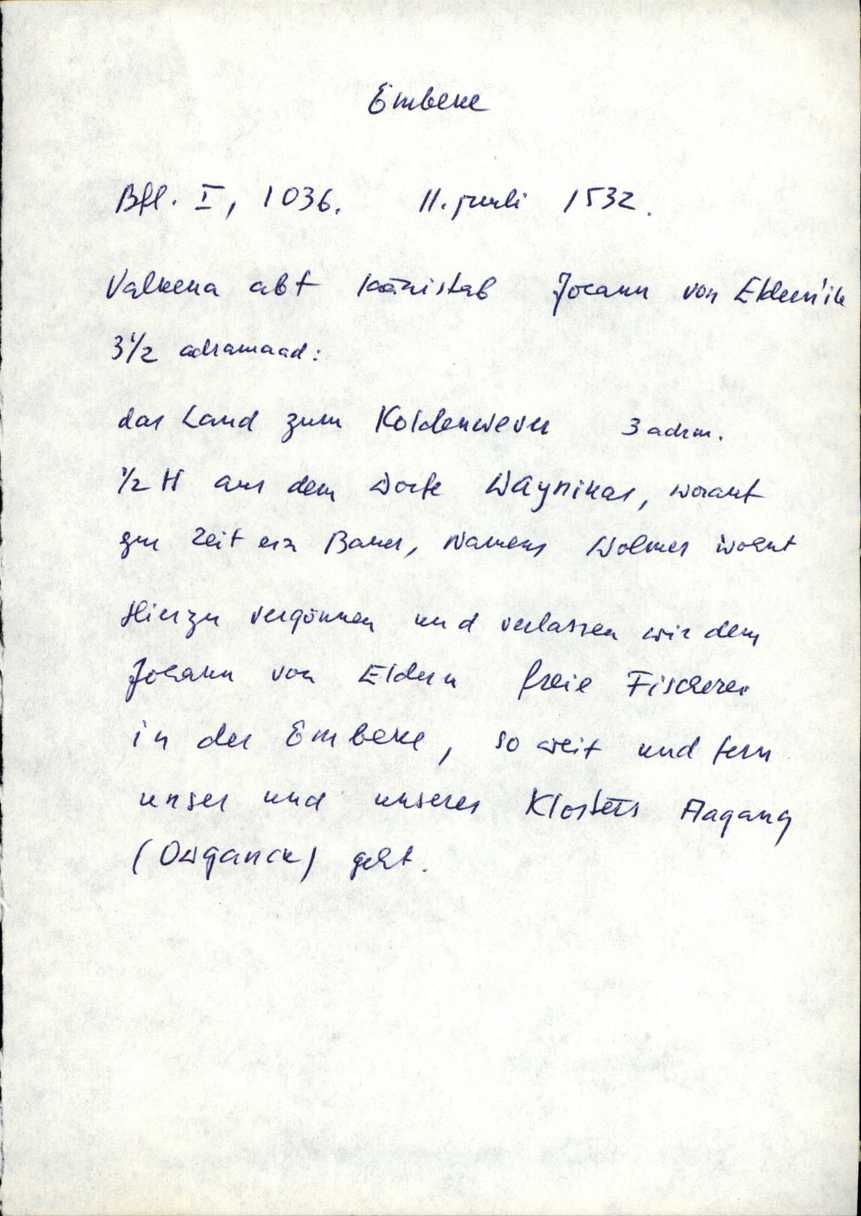 Embeke
Bfl. I, 1036. 11. juuli 1532.
Valkena abt läänistab Johann von Eldern'ile
3 1/2 adramaad:
das Land zum Koldenwever 3 adrm.
1/2 H aus dem Dorfe Waynikas, worauf
zur Zeit ein Bauer, Namens Wolmer wohnt
Hierzu vergönnen und verlassen wir dem
Johann von Eldern freie Fischerei
in der Embeke, so weit und fern
unser und unseres Klosters Aagang
(Owganck) geht.